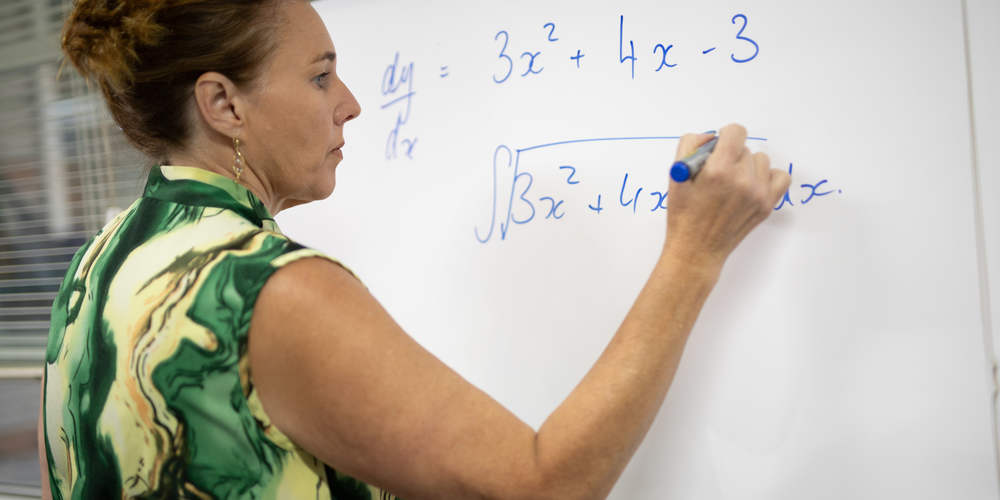 dy/dx = 3x² + 4x - 3
∫√3x² + 4x dx.